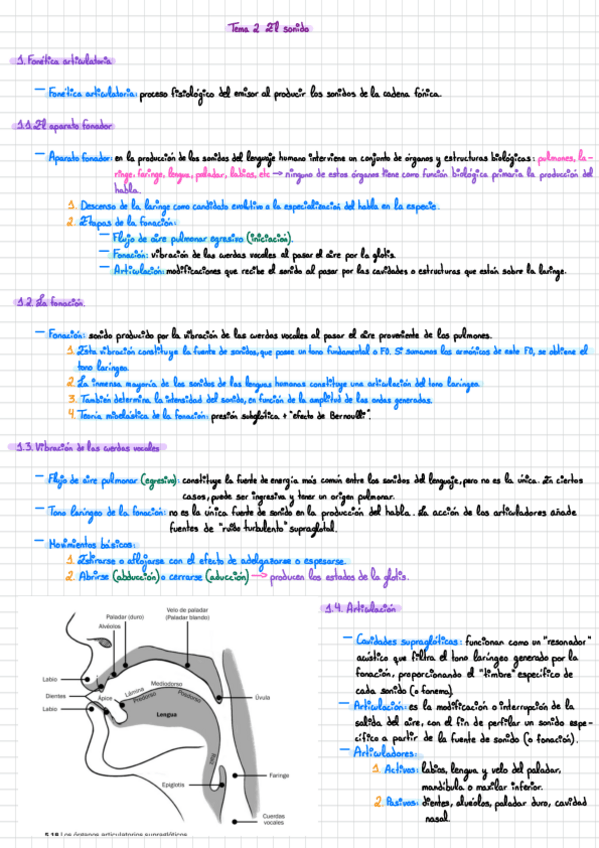 Tema 2 El sonido
1. Fonética articulatoria
— Fonética articulatoria: proceso fisiológico del emisor al producir los sonidos de la cadena fónica.
1.1. El aparato fonador
— Aparato fonador: en la producción de los sonidos del lenguaje humano interviene un conjunto de órganos y estructuras biológicas: pulmones, la-
ringe, faringe, lengua, paladar, labios, etc → ninguno de estos órganos tiene como función biológica primaria la producción del
habla.
1. Descenso de la laringe como candidato evolutivo a la especialización del habla en la especie.
2. Etapas de la fonación:
— Flujo de aire pulmonar egresivo (iniciación).
— Fonación: vibración de las cuerdas vocales al pasar el aire por la glotis.
— Articulación: modificaciones que recibe el sonido al pasar por las cavidades o estructuras que están sobre la laringe.
1.2. La fonación.
— Fonación: sonido producido por la vibración de las cuerdas vocales al pasar el aire proveniente de los pulmones.
1. Esta vibración constituye la fuente de sonidos, que posee un tono fundamental o F0. Si sumamos los armónicos de este F0, se obtiene el
tono laríngeo.
2. La inmensa mayoría de los sonidos de las lenguas humanas constituye una articulación del tono laríngeo.
3. También determina la intensidad del sonido, en función de la amplitud de las ondas generadas.
4. Teoría mioelástica de la fonación: presión subglótica + "efecto de Bernoulli".
1.3. Vibración de las cuerdas vocales
— Flujo de aire pulmonar (egresivo): constituye la fuente de energía más común entre los sonidos del lenguaje, pero no es la única. En ciertos
casos, puede ser ingresiva y tener un origen pulmonar.
— Tono laríngeo de la fonación: no es la única fuente de sonido en la producción del habla. La acción de los articuladores añade
fuentes de "ruido turbulento" supraglotal.
— Movimientos básicos:
1. Estirarse o aflojarse con el efecto de adelgazarse o espesarse.
2. Abrirse (abducción) o cerrarse (aducción) → producen los estados de la glotis.
Velo de paladar
(Paladar blando)
Paladar (duro)
Alvéolos
Labio
Dientes
Labio
Ápice
Lámina
Predorso
Mediodorso
Postdorso
Lengua
Raíz
Úvula
Epiglotis
Faringe
Cuerdas
vocales
5.18 Los órganos articulatorios supraglóticos
1.4. Articulación
— Cavidades supraglóticas: funcionan como un "resonador"
acústico que filtra el tono laríngeo generado por la
fonación, proporcionando el "timbre" específico de
cada sonido (o fonema).
— Articulación: es la modificación o interrupción de la
salida del aire, con el fin de perfilar un sonido espe-
cífico a partir de la fuente de sonido (o fonación).
— Articuladores:
1. Activos: labios, lengua y velo del paladar,
mandíbula o maxilar inferior.
2. Pasivos: dientes, alvéolos, paladar duro, cavidad
nasal.